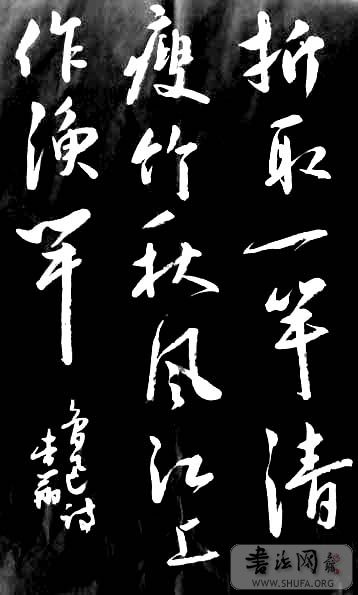 折取一竿清
瘦竹秋风江上
作渔竿
书法网
WWW.SHUFA.ORG